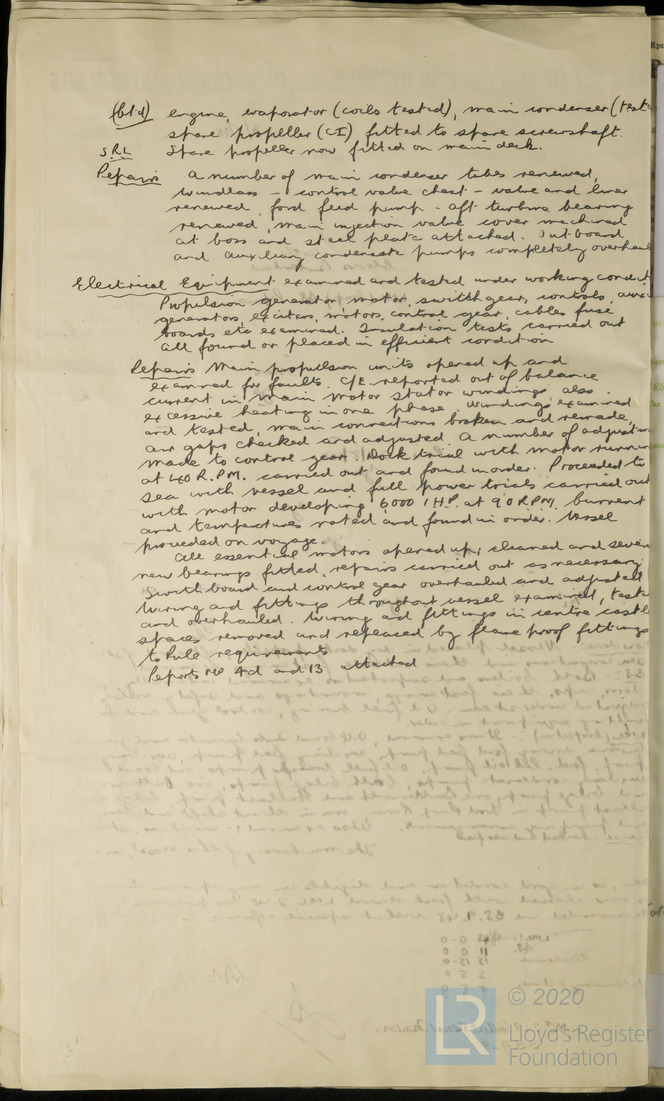 (btd) engine, evaporator (coils tested), main condenser (test
spare propeller (CI) fitted to spare screwshaft.
S.R.L Spare propeller now fitted on main deck.
Repairs A number of main condenser tubes renewed,
windlass - control valve chest - valve and liner
renewed, ford feed pump - aft turbine bearing
renewed, main injection valve cover machined
at boss and steel plate attached. Outboard
and auxiliary condensate pumps completely overhaul
Electrical Equipment examined and tested under working condit
Propulsion generator, motor, switch gear, controls, auxi
generators, exciters, motors, control gear, cables fuse
boards etc examined. Insulation tests carried out
all found or placed in efficient condition
Repairs Main propulsion units opened up and
examined for faults. C/E reported out of balance
current in main motor stator windings also
excessive heating in one phase. Windings examined
and tested, main connections broken and remade,
air gaps checked and adjusted. A number of adjustm
made to control gear. Dock trial with motor runnin
at 40 R.P.M. carried out and found in order. Proceeded to
sea with vessel and full power trials carried out
with motor developing 6000 I HP. at 90 RPM, current
and temperatures noted and found in order. Vessel
proceeded on voyage.
All essential motors opened up, cleaned and sever
new bearings fitted, repairs carried out as necessary.
Switchboard and control gear overhauled and adjusted
Wiring and fittings throughout vessel examined, teste
and overhauled. Wiring and fittings in centre castle
spaces removed and replaced by flame proof fittings
to Rule requirements
Reports No 4d and 13 attached
LR
© 2020
Lloyd's Register
Foundation